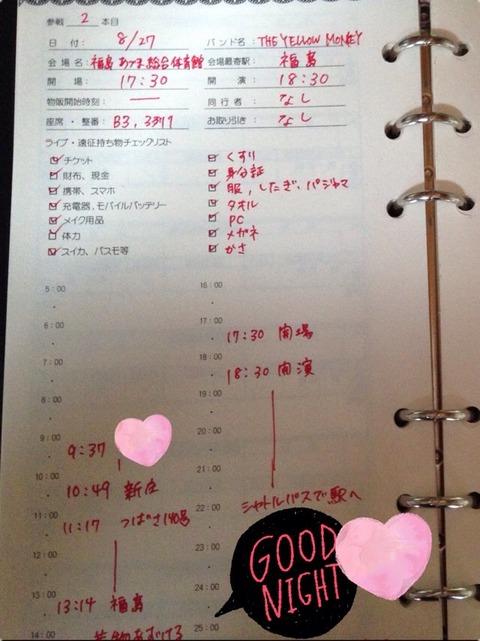 参戦 2 本目
日 付: 8/27 バンド名: THE YELLOW MONKEY
会場名: 福島 あづま総合体育館 会場最寄駅: 福島
開 場: 17:30 開 演: 18:30
物販開始時刻: ― 同行者: なし
座席・整番: B3, 3列 お取り引き: なし
ライブ・遠征持ち物チェックリスト
チケット くすり
財布、現金 身分証
携帯、スマホ 服, したぎ, パジャマ
充電器、モバイルバッテリー タオル
メイク用品 PC
体力 メガネ
スイカ、パスモ等 かさ
5:00 16:00
6:00 17:00
17:30 開場
7:00 18:00
18:30 開演
8:00 19:00
20:00
9:00
9:37
10:00 21:00
10:49 新庄
11:00 22:00 シャトルバスで駅へ
11:17 つばさ140号
12:00 23:00
GOOD
NIGHT
13:00 24:00
13:14 福島
14:00 25:00
荷物あずける